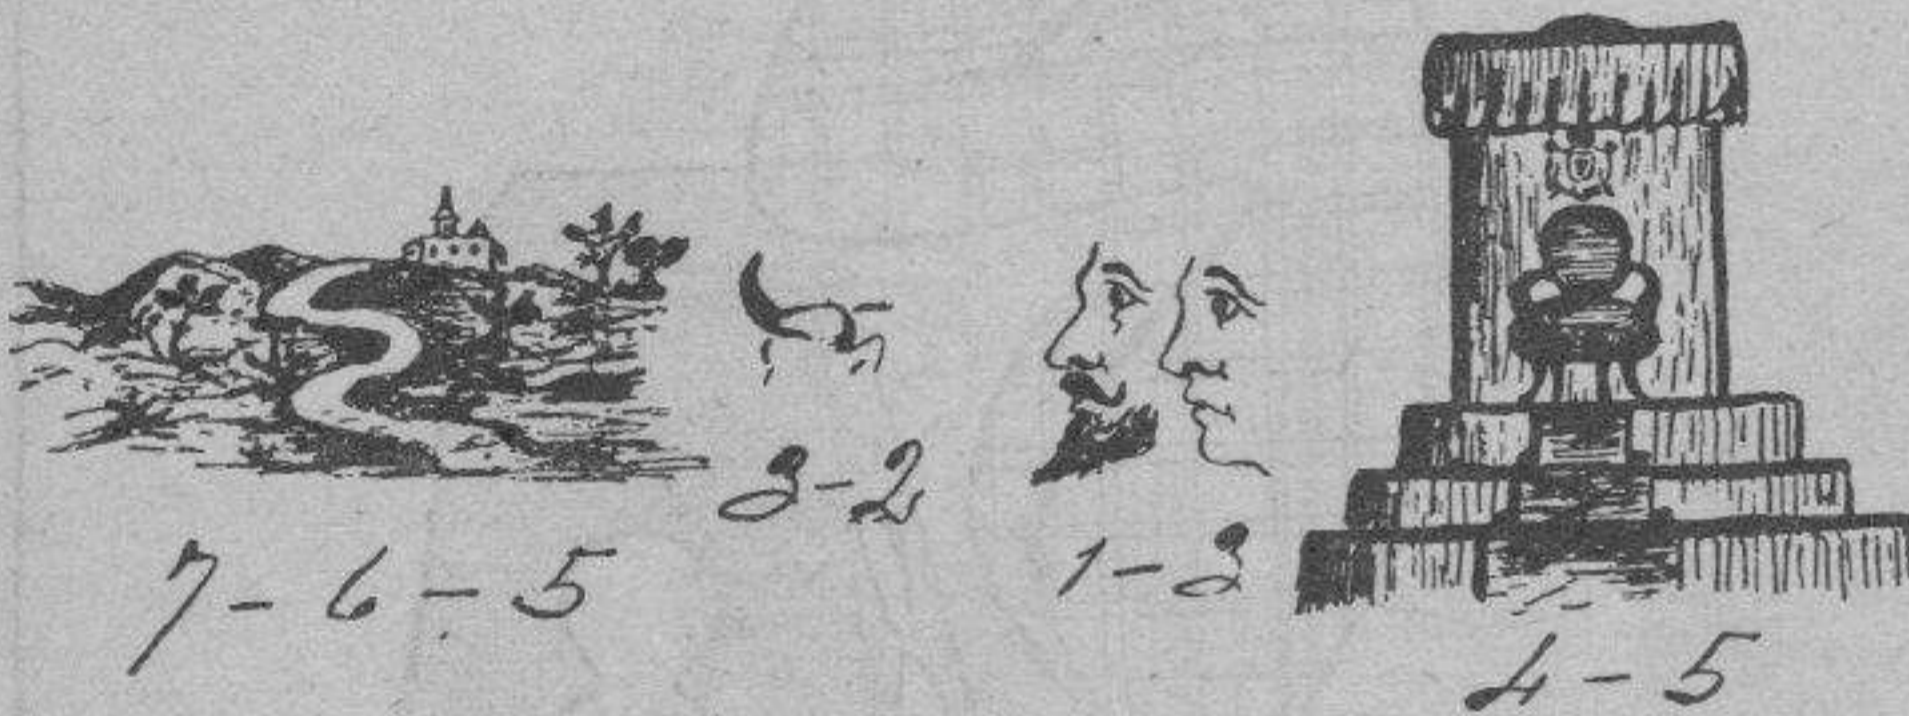 7-6-5
3-2
1-3
4-5